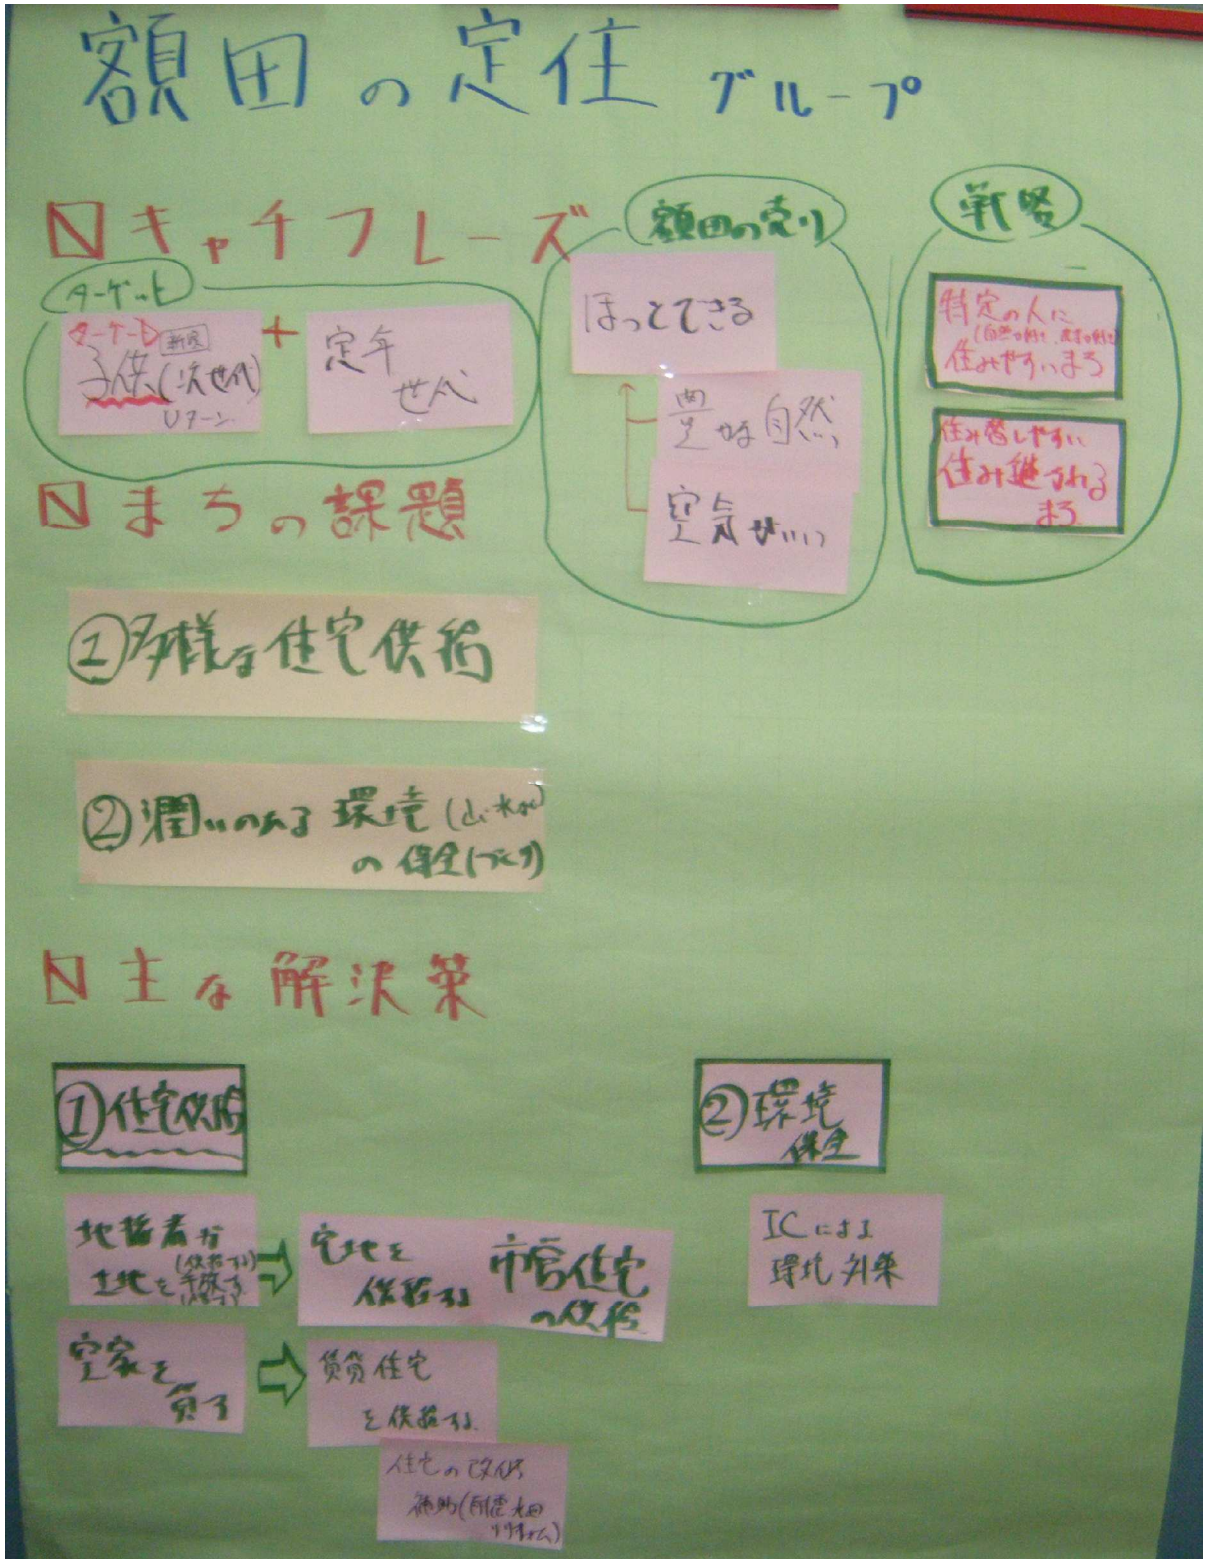 額田の定住グループ
キャッチフレーズ
ターゲット
ターゲート
新民
子供(次世代)
Uターン
+
定年
世代
額田の売り
ほっとできる
豊かな自然
空気がいい
戦略
特定の人に
住みやすいまち
住み替しやすい
住み継がれる
まち
まちの課題
①多様な住宅供給
②潤いのある環境(山・水など)
の保全(づくり)
主な解決策
①住宅供給
地権者が
(供給する)
土地を手放す
宅地を
供給する
市営住宅
の供給
空家を
貸す
賃貸住宅
を供給する
住宅の改修
補助(
②環境
保全
ICによる
環境対策